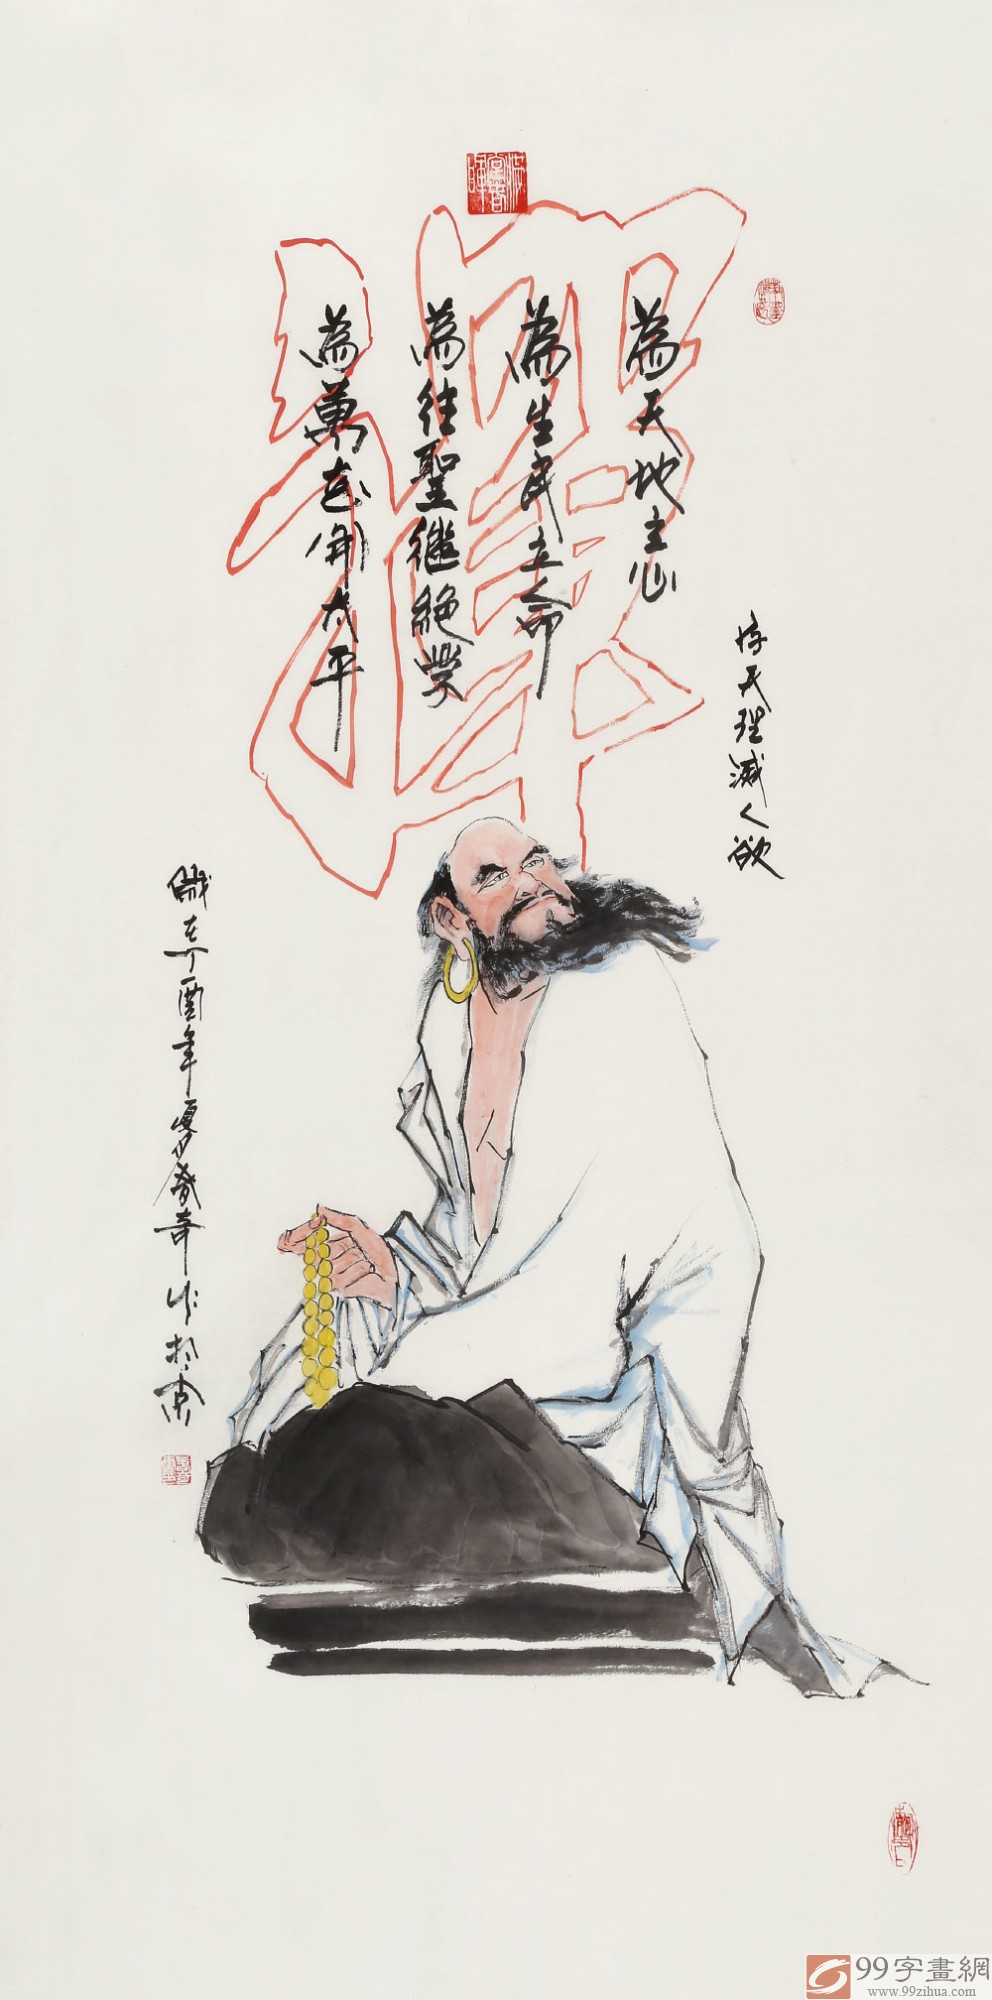 禪
存天理滅人欲
為天地立心
為生民立命
為往聖繼絕學
為萬世開太平
歲在丁酉年夏奇作於京
99字畫網
www.99zihua.com